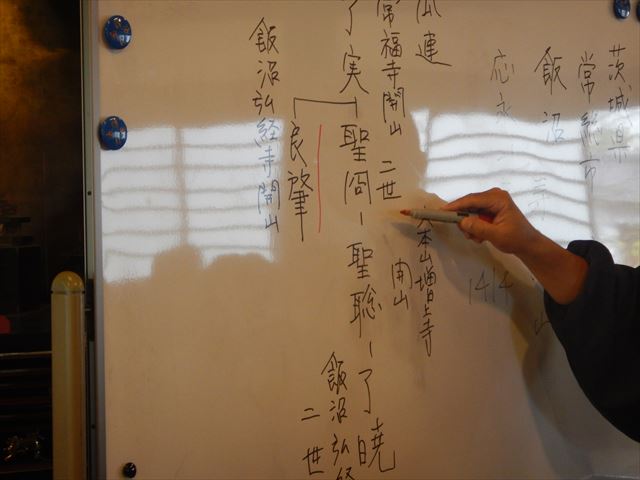 茨城県
常総市
飯沼
応永
1414
瓜連
常福寺開山 二世
大本山増上寺
開山
了実
聖冏ー聖聡ー了暁
良肇
飯沼弘経
二世
飯沼弘経寺開山